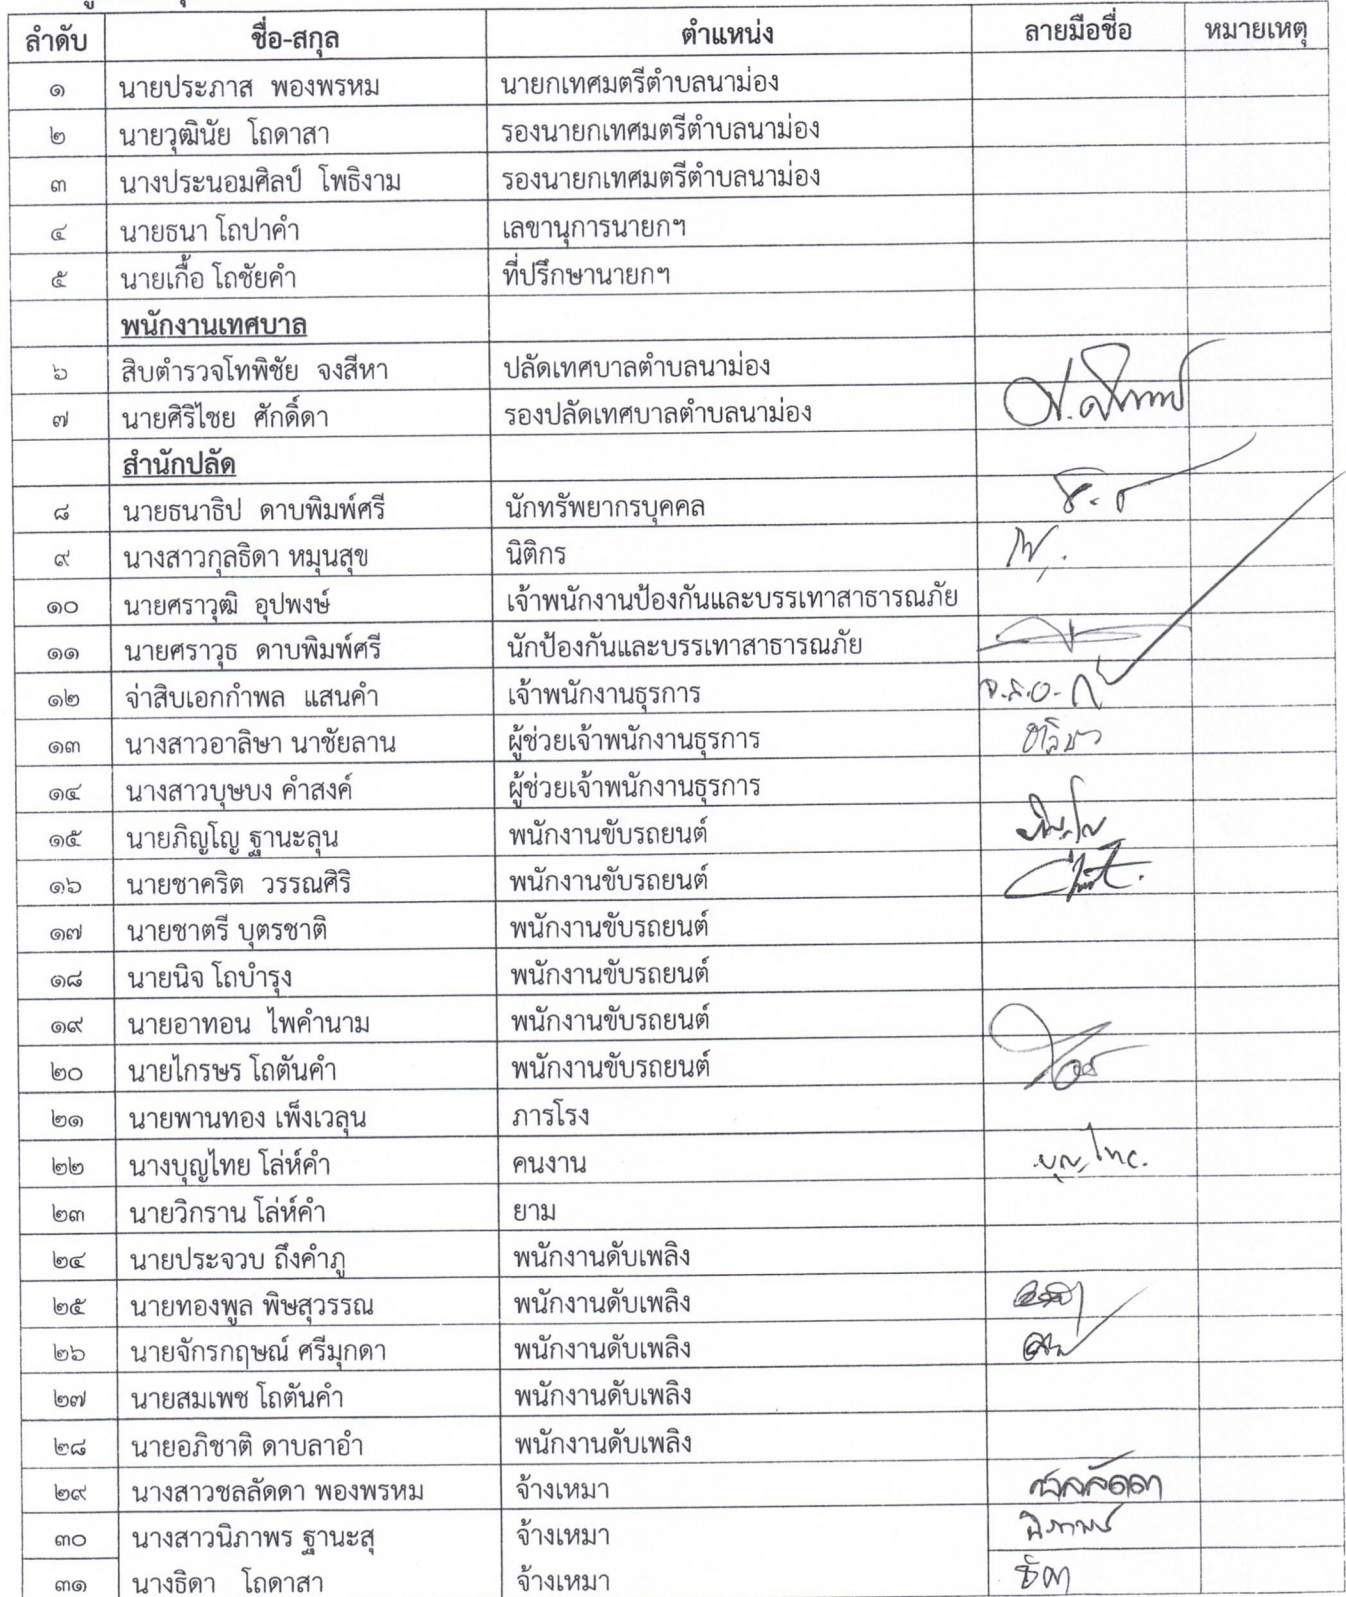 ลำดับ ชื่อ-สกุล ตำแหน่ง ลายมือชื่อ หมายเหตุ
๑ นายประภาส พองพรหม นายกเทศมตรีตำบลนาม่อง
๒ นายวุฒินัย โถดาสา รองนายกเทศมตรีตำบลนาม่อง
๓ นางประนอมศิลป์ โพธิงาม รองนายกเทศมตรีตำบลนาม่อง
๔ นายธนา โถปาคำ เลขานุการนายกฯ
๕ นายเกื้อ โถชัยคำ ที่ปรึกษานายกฯ
พนักงานเทศบาล
๖ สิบตำรวจโทพิชัย จงสีหา ปลัดเทศบาลตำบลนาม่อง
๗ นายศิริไชย ศักดิ์ดา รองปลัดเทศบาลตำบลนาม่อง
สำนักปลัด
๘ นายธนาธิป ดาบพิมพ์ศรี นักทรัพยากรบุคคล
๙ นางสาวกุลธิดา หมุนสุข นิติกร
๑๐ นายศราวุฒิ อุปพงษ์ เจ้าพนักงานป้องกันและบรรเทาสาธารณภัย
๑๑ นายศราวุธ ดาบพิมพ์ศรี นักป้องกันและบรรเทาสาธารณภัย
๑๒ จ่าสิบเอกกำพล แสนคำ เจ้าพนักงานธุรการ จ.ส.อ.
๑๓ นางสาวอาลิษา นาชัยลาน ผู้ช่วยเจ้าพนักงานธุรการ อาลิษา
๑๔ นางสาวบุษบง คำสงค์ ผู้ช่วยเจ้าพนักงานธุรการ
๑๕ นายภิญโญ ฐานะลุน พนักงานขับรถยนต์
๑๖ นายชาคริต วรรณศิริ พนักงานขับรถยนต์
๑๗ นายชาตรี บุตรชาติ พนักงานขับรถยนต์
๑๘ นายนิจ โถบำรุง พนักงานขับรถยนต์
๑๙ นายอาทอน ไพคำนาม พนักงานขับรถยนต์
๒๐ นายไกรษร โถตันคำ พนักงานขับรถยนต์
๒๑ นายพานทอง เพ็งเวลุน ภารโรง
๒๒ นางบุญไทย โล่ห์คำ คนงาน บุญไทย
๒๓ นายวิกราน โล่ห์คำ ยาม
๒๔ นายประจวบ ถึงคำภู พนักงานดับเพลิง
๒๕ นายทองพูล พิษสุวรรณ พนักงานดับเพลิง
๒๖ นายจักรกฤษณ์ ศรีมุกดา พนักงานดับเพลิง
๒๗ นายสมเพช โถตันคำ พนักงานดับเพลิง
๒๘ นายอภิชาติ ดาบลาอำ พนักงานดับเพลิง
๒๙ นางสาวชลลัดดา พองพรหม จ้างเหมา ชลลัดดา
๓๐ นางสาวนิภาพร ฐานะสุ จ้างเหมา นิภาพร
๓๑ นางธิดา โถดาสา จ้างเหมา ธิดา